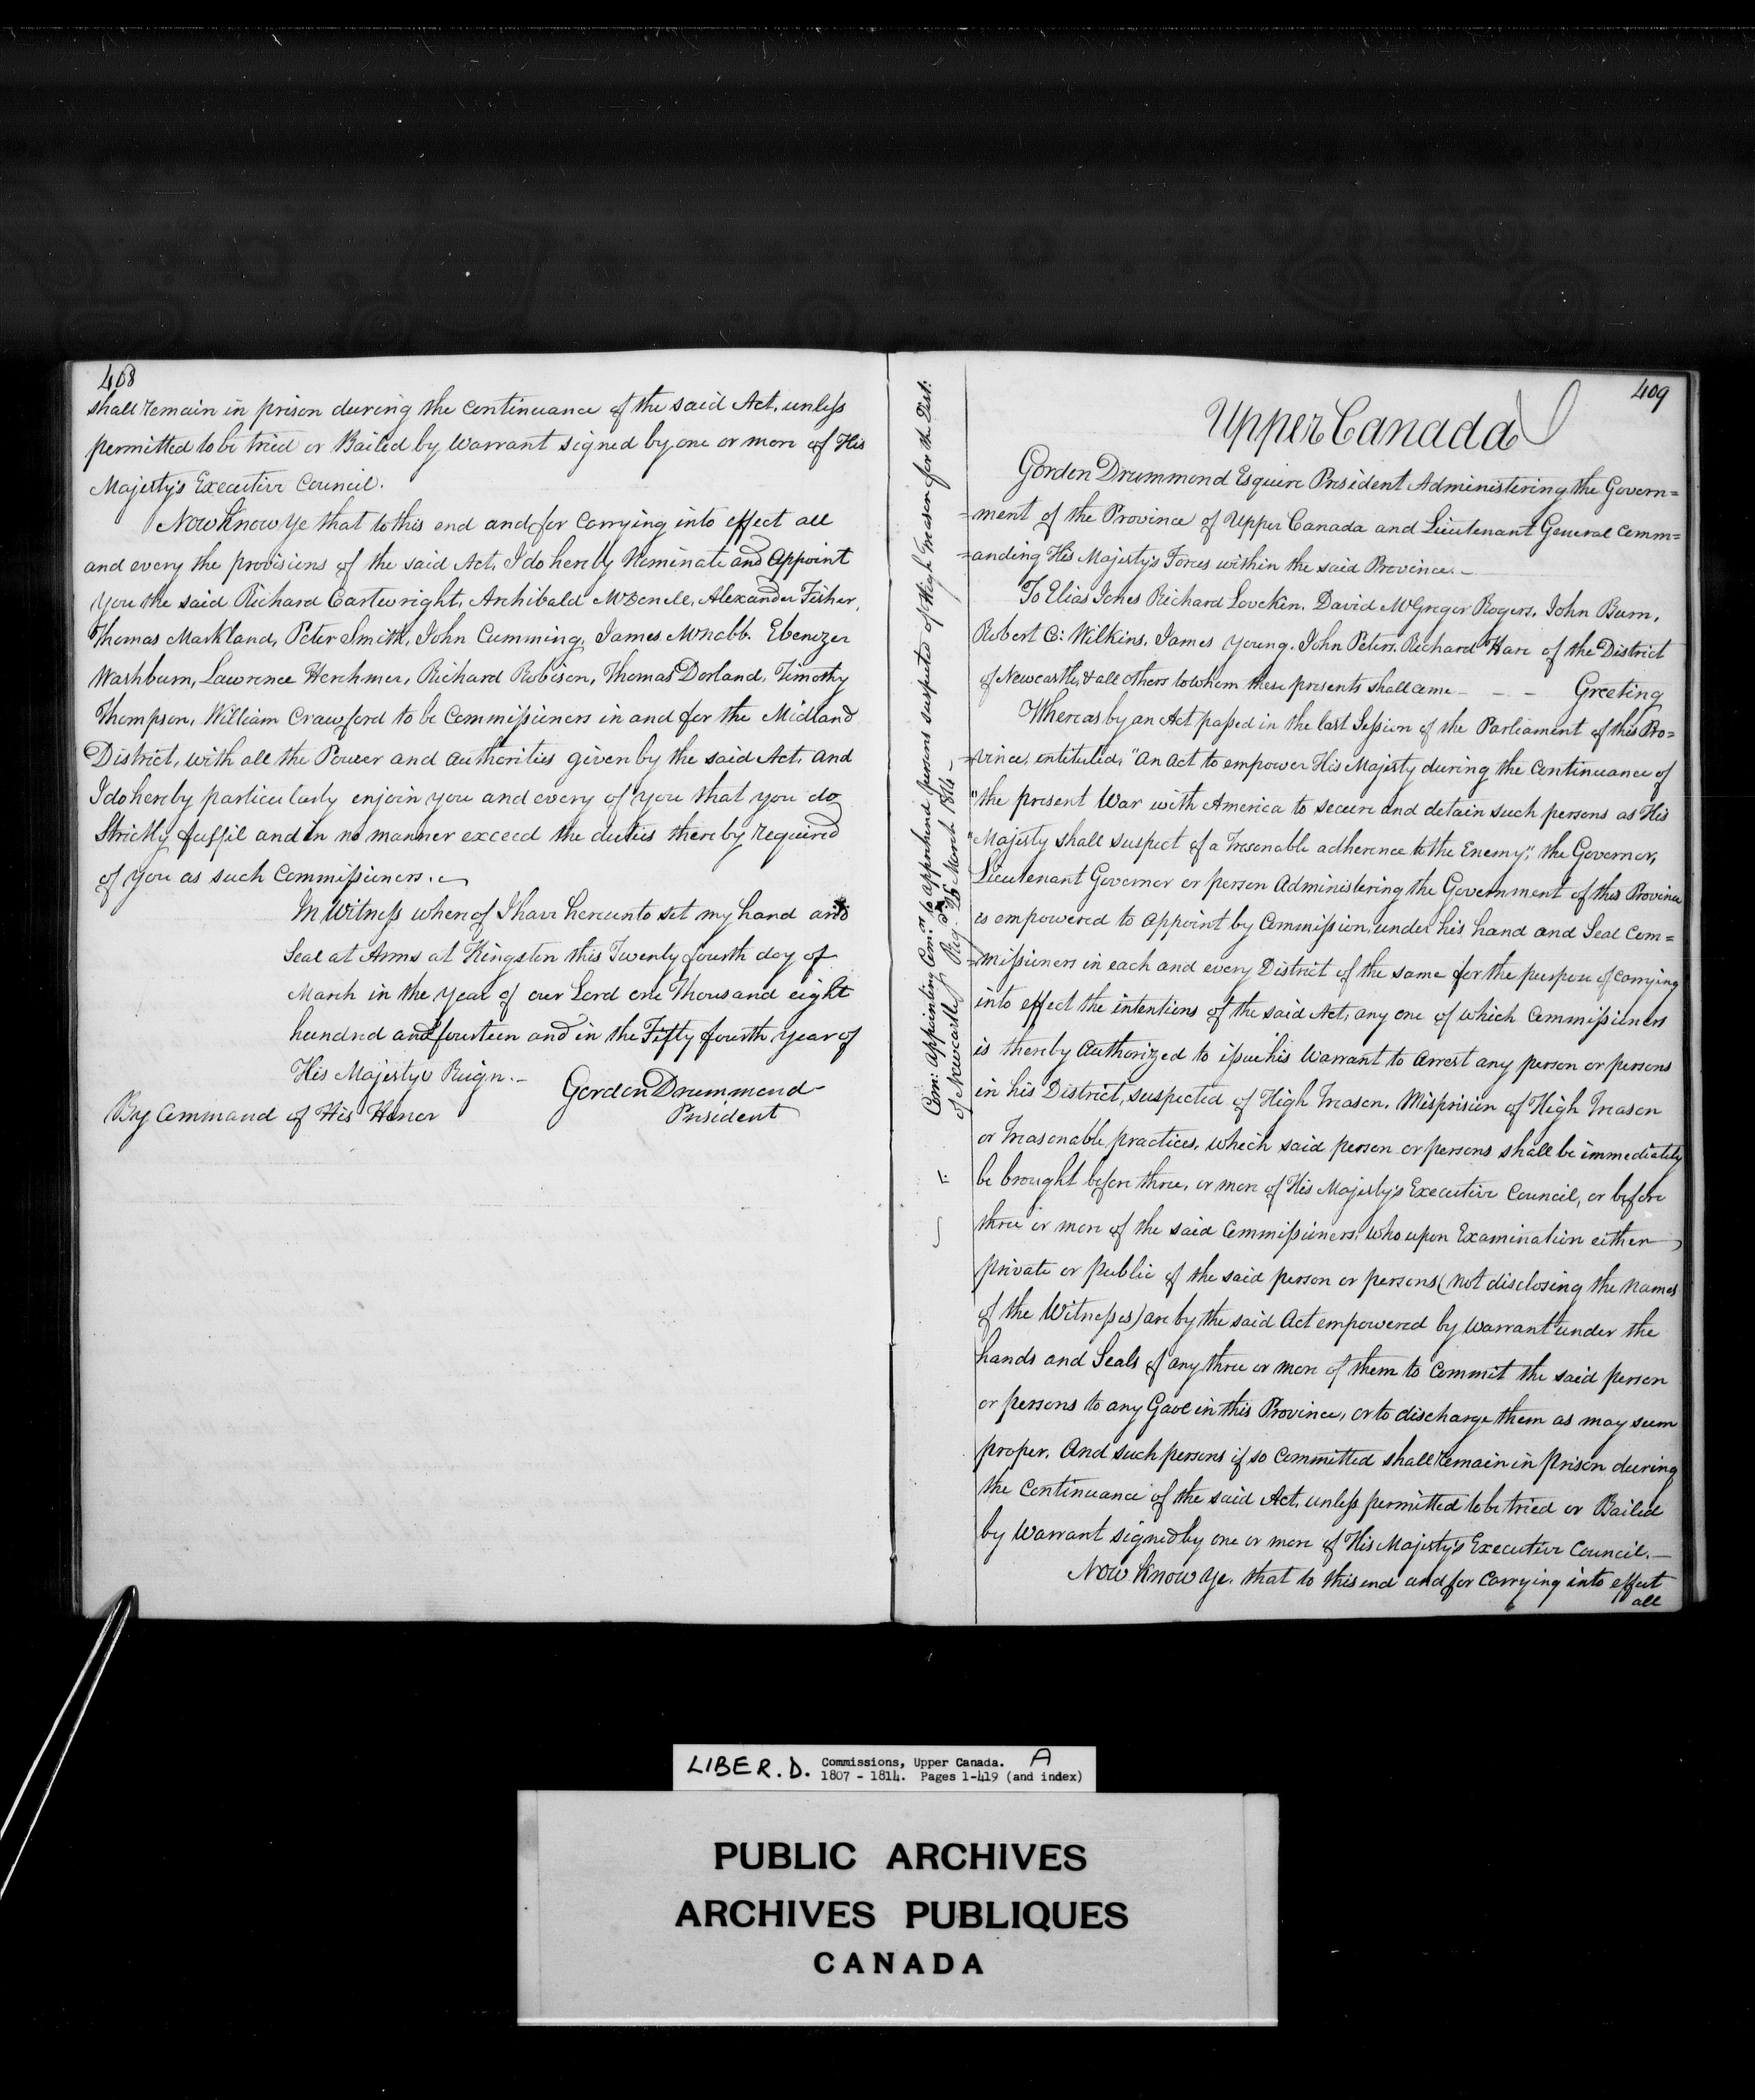 408
shall remain in prison during the continuance of the said Act, unless
permitted to be tried or Bailed by warrant signed by one or more of His
Majesty's Executive Council.
Now Know Ye that to this end and for Carrying into effect all
and every the provisions of the said Act, I do hereby Nominate and Appoint
You the said Richard Cartwright, Archibald McDonell, Alexander Fisher,
Thomas Markland, Peter Smith, John Cumming, James McNabb. Ebenezer
Washburn, Lawrence Herchmer, Richard Robison, Thomas Dorland, Timothy
Thompson, William Crawford to be Commissioners in and for the Midland
District, with all the Power and authorities given by the said Act, and
I do hereby particularly enjoin you and every of you that you do
Strictly fulfil and in no manner exceed the duties thereby required
of you as such Commissioners.
In Witness whereof I have hereunto set my hand and
Seal at Arms at Kingston this Twenty fourth day of
March in the Year of our Lord one Thousand eight
hundred and fourteen and in the Fifty fourth Year of
His Majestys Reign.-
Gordon Drummond
President
By Command of His Honor
Com: appointing Com:rs to apprehend persons suspected of High Treason for the Dist:
of Newcastle Reg:d 26 March 1814 -
409
Upper Canada
Gordon Drummond Esquire President Administering the Govern=
=ment of the Province of Upper Canada and Lieutenant General Comm=
=anding His Majesty's Forces within the said Province.-
To Elias Jones Richard Lovekin. David McGregor Rogers. John Burn,
Robert C: Wilkins. James Young. John Peters. Richard Hare of the District
of Newcastle, & all others to whom these presents shall come - - - Greeting
Whereas by an Act passed in the last Session of the Parliament of this Pro=
=vince, entituled, "An act to empower His Majesty during the Continuance of
"the present War with America to secure and detain such persons as His
"Majesty shall suspect of a Treasonable adherence to the Enemy", the Governor,
Lieutenant Governor or person Administering the Government of this Province
is empowered to appoint by Commission, under his hand and Seal Com=
=missioners in each and every District of the same for the purpose of carrying
into effect the intentions of the said Act, any one of which Commissioners
is thereby Authorized to issue his Warrant to Arrest any person or persons
in his District, suspected of High Treason. Misprision of High Treason
or Treasonable practices, which said person or persons shall be immediately
be brought before three, or more of His Majesty's Executive Council, or before
three or more of the said Commissioners, who upon Examination either
private or public of the said person or persons (not disclosing the names
of the Witnesses) are by the said Act empowered by warrant under the
hands and Seals of any three or more of them to Commit the said person
or persons to any Gaol in this Province, or to discharge them as may seem
proper. And such persons if so Committed shall remain in Prison during
the Continuance of the said Act, unless permitted to be tried or Bailed
by Warrant signed by one or more of His Majesty's Executive Council.-
Now Know Ye, that to this end and for Carrying into effect
all
LIBER. D. Commissions, Upper Canada. A
1807 - 1814. Pages 1-419 (and index)
PUBLIC ARCHIVES
ARCHIVES PUBLIQUES
CANADA